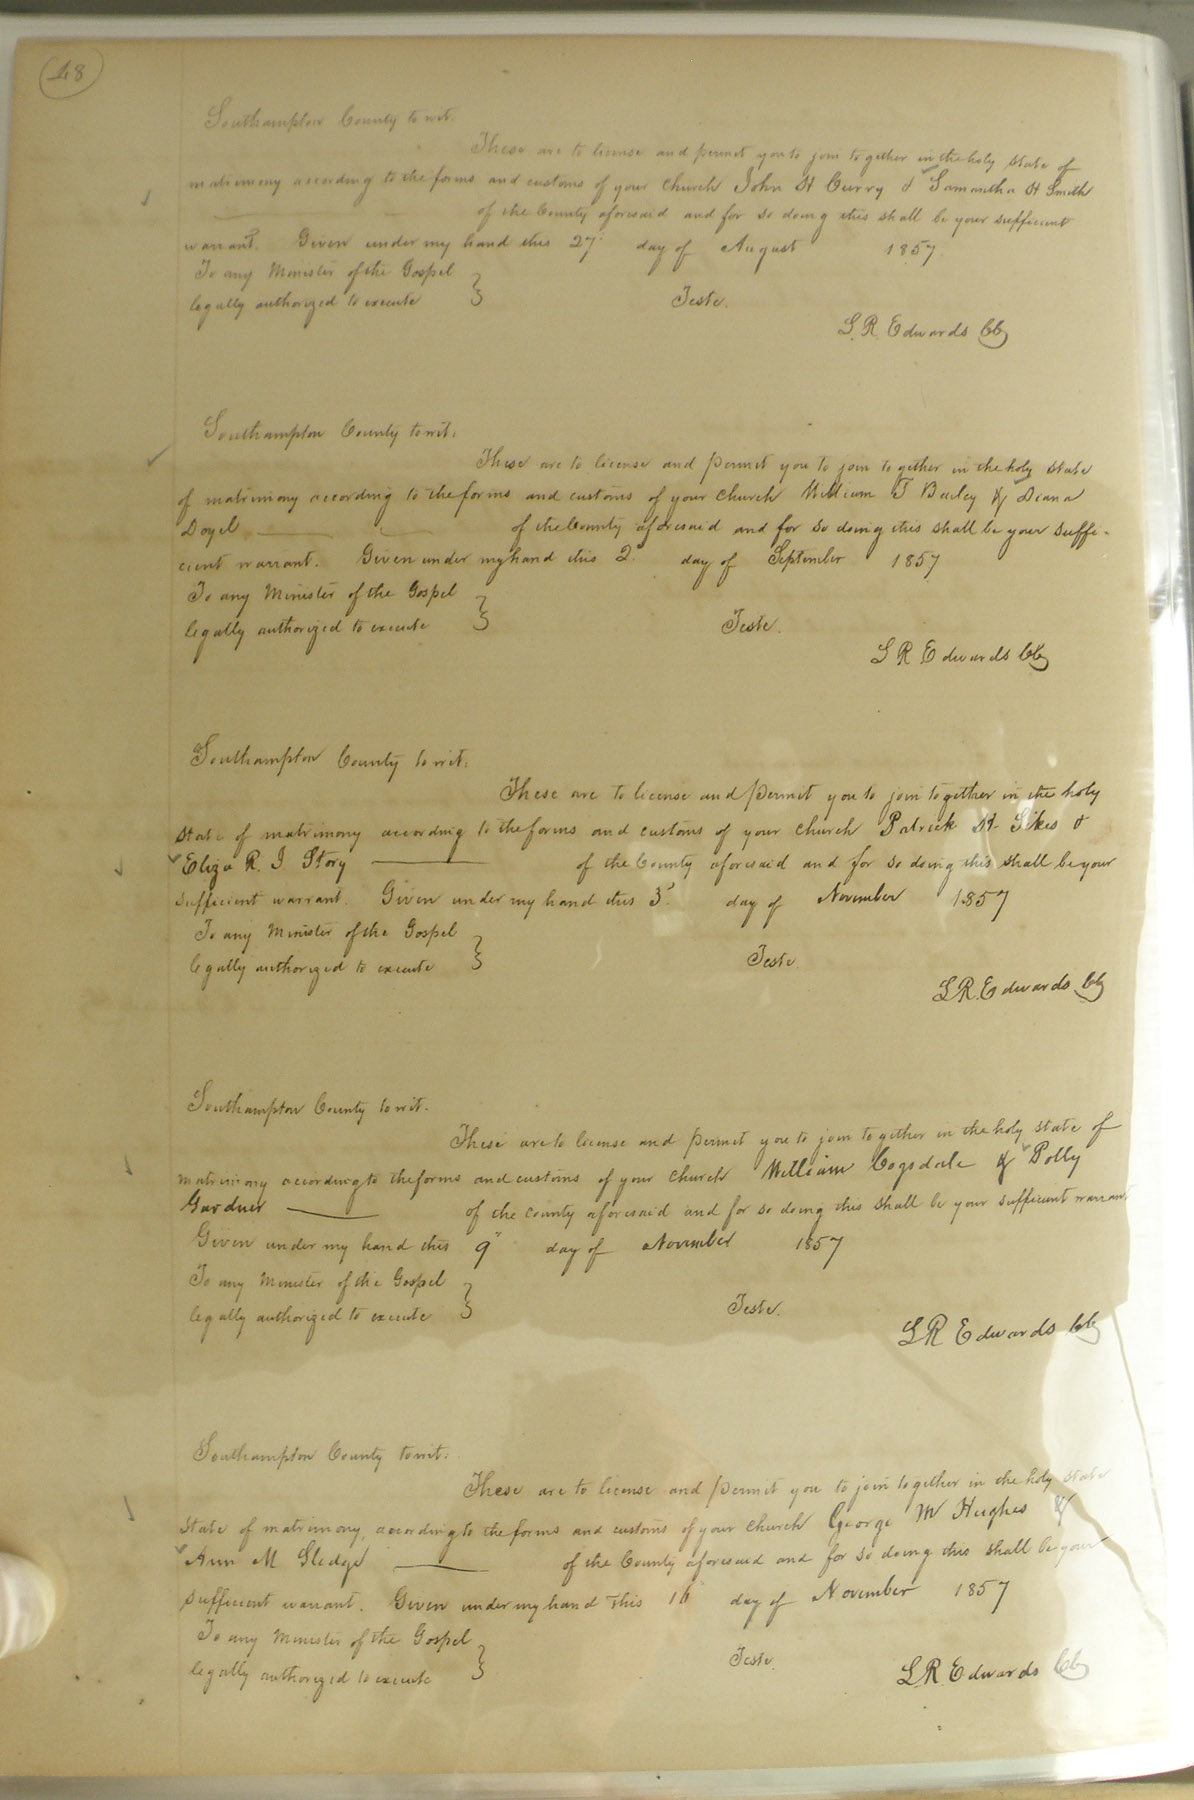 48
Southampton County to wit.
These are to license and permit you to join together in the holy state of
matrimony according to the forms and customs of your church John H Curry & Samantha H Smith
of the County aforesaid and for so doing this shall be your sufficient
warrant. Given under my hand this 27 day of August 1857
To any Minister of the Gospel
legally authorized to execute } Teste.
L. R. Edwards CC
Southampton County to wit:
These are to license and permit you to join together in the holy state
of matrimony according to the forms and customs of your church William T Bailey & Diana
Doyel of the County aforesaid and for so doing this shall be your suffi-
cient warrant. Given under my hand this 2 day of September 1857
To any Minister of the Gospel
legally authorized to execute } Teste.
L R Edwards CC
Southampton County to wit:
These are to license and permit you to join together in the holy
state of matrimony according to the forms and customs of your church Patrick H. Sikes &
Eliza R. J Story of the County aforesaid and for so doing this shall be your
sufficient warrant. Given under my hand this 3 day of November 1857
To any Minister of the Gospel
legally authorized to execute } Teste
L.R. Edwards CC
Southampton County to wit.
These are to license and permit you to join together in the holy state of
matrimony according to the forms and customs of your church William Cogsdale & Polly
Gardner of the county aforesaid and for so doing this shall be your sufficient warrant
Given under my hand this 9" day of November 1857
To any Minister of the Gospel
legally authorized to execute } Teste.
L R Edwards CC
Southampton County to wit:
These are to license and permit you to join together in the holy state
state of matrimony, according to the forms and customs of your church George M Hughes &
Ann M Gledge of the County aforesaid and for so doing this shall be your
sufficient warrant. Given under my hand this 16 day of November 1857
To any Minister of the Gospel
legally authorized to execute } Teste.
L.R. Edwards CC